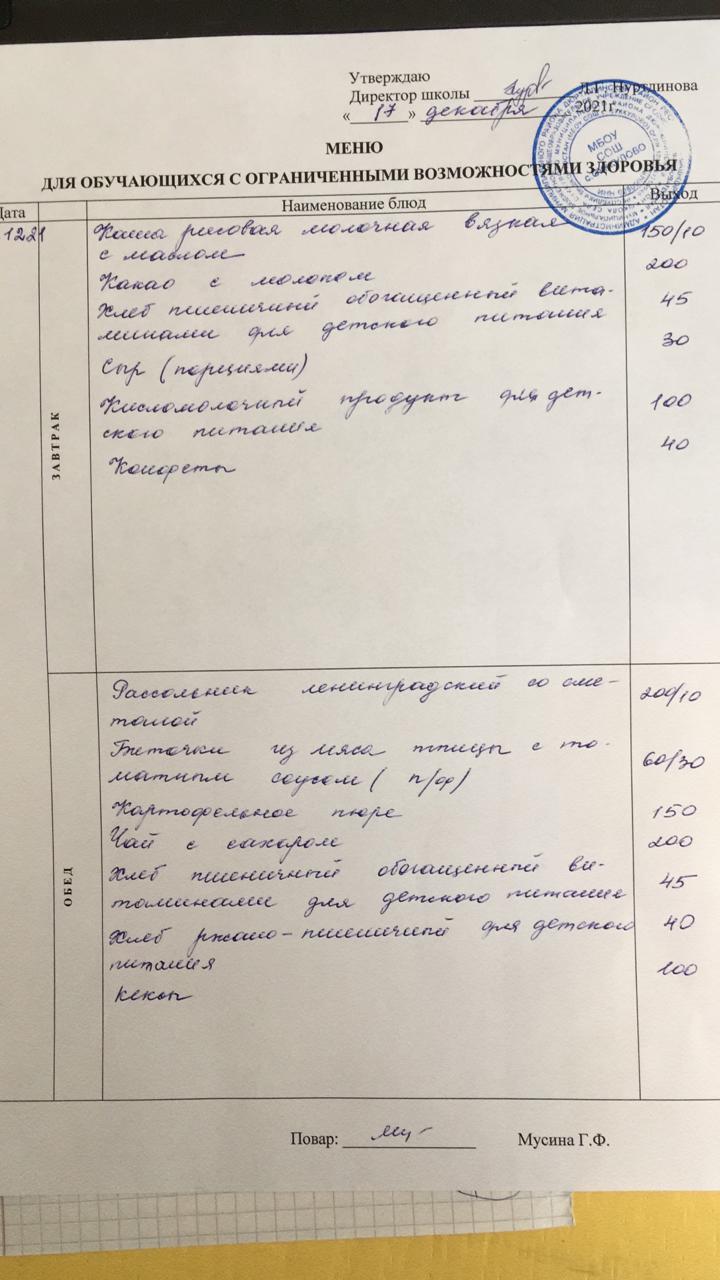 Утверждаю
Директор школы Л.Г. Нуртдинова
« 17 » декабря 2021г.
МЕНЮ
ДЛЯ ОБУЧАЮЩИХСЯ С ОГРАНИЧЕННЫМИ ВОЗМОЖНОСТЯМИ ЗДОРОВЬЯ
Дата Наименование блюд Выход
1221 Каша рисовая молочная вязкая 150/10
с маслом
Какао с молоком 200
Хлеб пшеничный обогащенный вита- 45
минами для детского питания
Сыр (порциями) 30
Кисломолочный продукт для дет- 100
ского питания
Конфеты 40
ЗАВТРАК
Рассольник ленинградский со сме- 200/10
таной
Биточки из мяса птицы с то- 60/30
матным соусом ( п/ф)
Картофельное пюре 150
Чай с сахаром 200
Хлеб пшеничный обогащенный ви- 45
таминами для детского питания
Хлеб ржано-пшеничный для детского 40
питания
Кексы 100
ОБЕД
Повар: Мусина Г.Ф.
МБОУ
СОШ